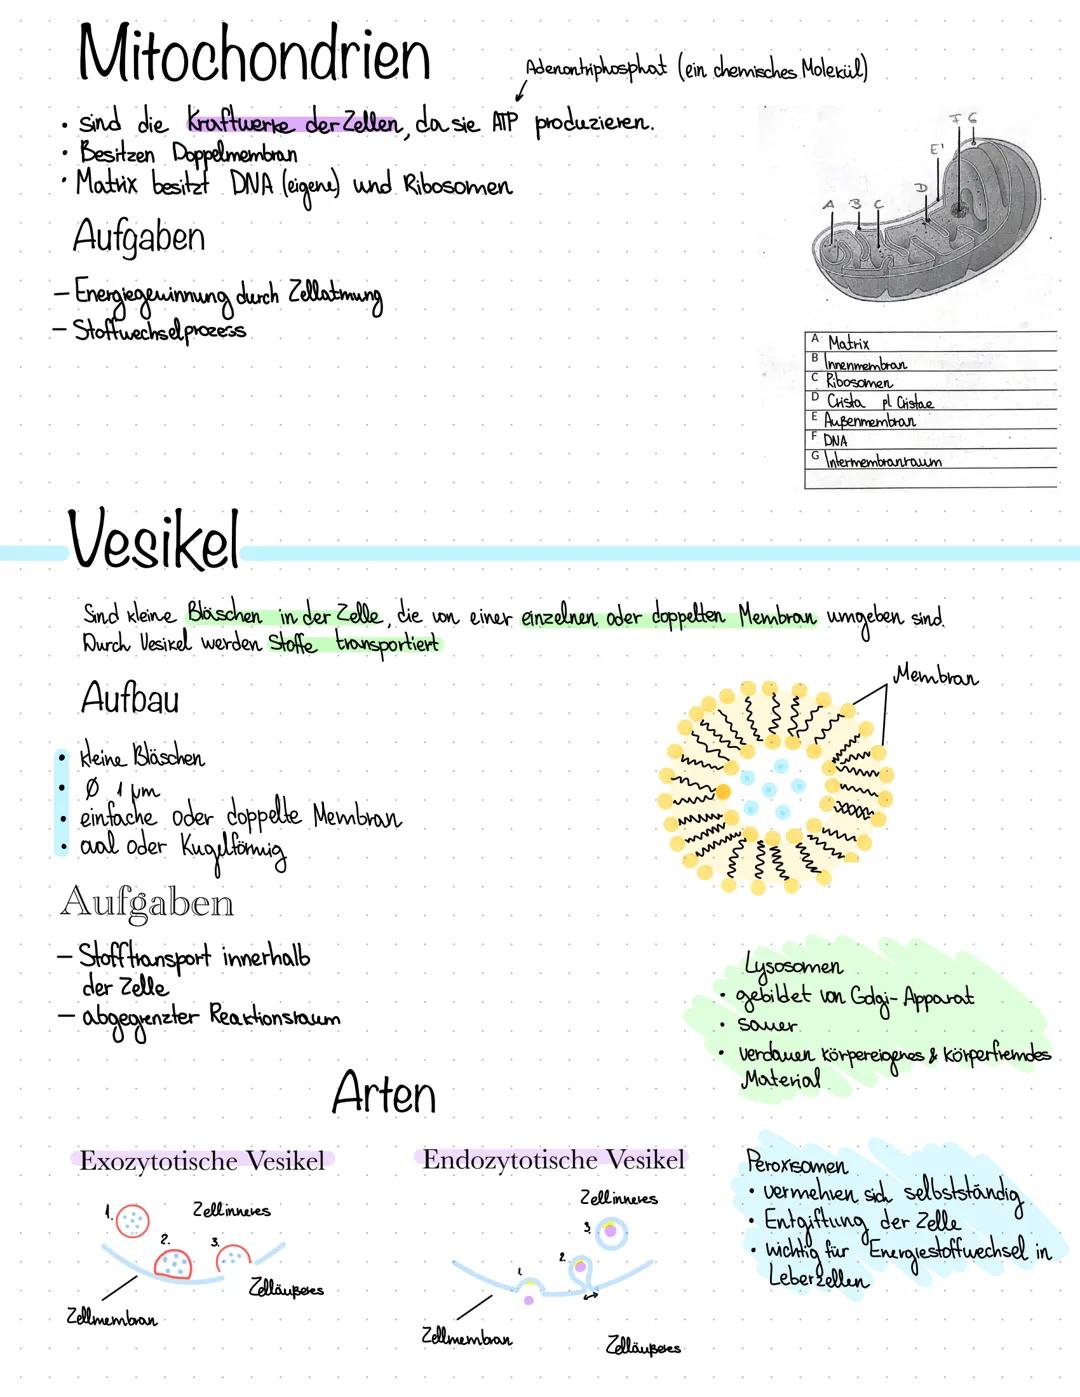 Mitochondrien
Adenontriphosphat (ein chemisches Molekül)
• sind die Kraftwerke der Zellen, da sie ATP produzieren.
• Besitzen Doppelmembran
• Matrix besitzt DNA (eigene) und Ribosomen
Aufgaben
– Energiegewinnung durch Zellatmung
– Stoffwechselprozess
F G
E'
D
A B C
A Matrix
B Innenmembran
C Ribosomen
D Crista pl Cristae
E Außenmembran
F DNA
G Intermembranraum
Vesikel
Sind kleine Bläschen in der Zelle, die von einer einzelnen oder doppelten Membran umgeben sind.
Durch Vesikel werden Stoffe transportiert
Membran
Aufbau
• kleine Bläschen
• Ø 1 µm
• einfache oder doppelte Membran
• oval oder Kugelförmig
Aufgaben
– Stofftransport innerhalb
der Zelle
– abgegrenzter Reaktionsraum
Lysosomen
• gebildet von Golgi-Apparat
• sauer
• verdauen körpereigenes & körperfremdes
Material
Arten
Exozytotische Vesikel
1.
Zellinneres
2.
3.
Zelläußeres
Zellmembran
Endozytotische Vesikel
Zellinneres
3.
2.
1.
Zellmembran
Zelläußeres
Peroxisomen
• vermehren sich selbstständig
• Entgiftung der Zelle
• wichtig für Energiestoffwechsel in
Leberzellen